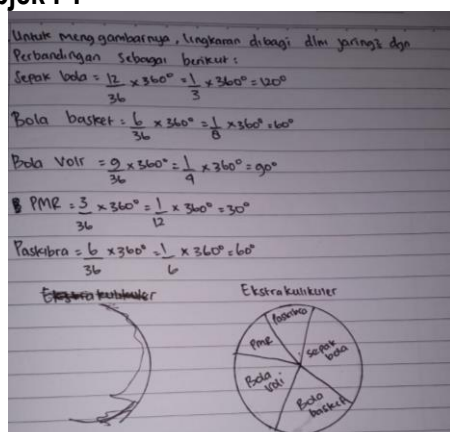 Untuk menggambarnya, lingkaran dibagi dlm jaring² dgn
Perbandingan sebagai berikut :
Sepak bola = 12/36 x 360° = 1/3 x 360° = 120°
Bola basket = 6/36 x 360° = 1/6 x 360° = 60°
Bola Voli = 9/36 x 360° = 1/4 x 360° = 90°
PMR = 3/36 x 360° = 1/12 x 360° = 30°
Paskibra = 6/36 x 360° = 1/6 x 360° = 60°
Ekstrakulikuler
Ekstrakulikuler
Paskibra
PMR
Sepak bola
Bola voli
Bola basket